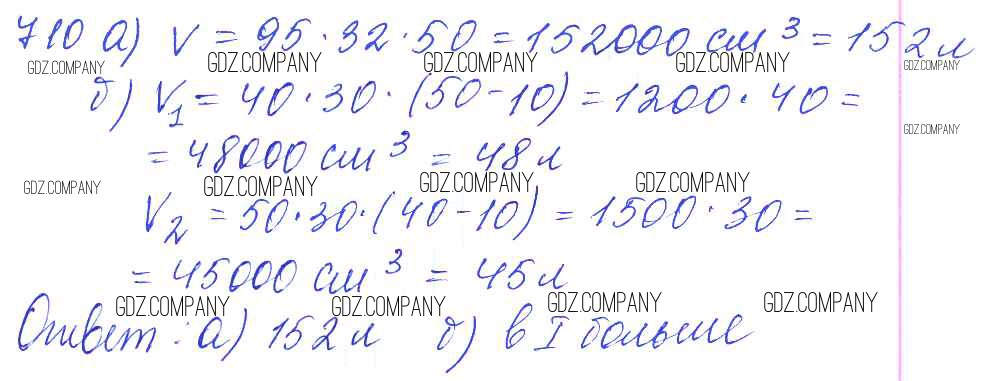 710 а) V = 95·32·50 = 152000 см³ = 152 л
GDZ.COMPANY GDZ.COMPANY GDZ.COMPANY GDZ.COMPANY GDZ.COMPANY
б) V₁ = 40·30·(50-10) = 1200·40 =
GDZ.COMPANY
= 48000 см³ = 48 л
GDZ.COMPANY GDZ.COMPANY GDZ.COMPANY GDZ.COMPANY
V₂ = 50·30·(40-10) = 1500·30 =
= 45000 см³ = 45 л
GDZ.COMPANY GDZ.COMPANY GDZ.COMPANY GDZ.COMPANY
Ответ: а) 152 л б) в I больше